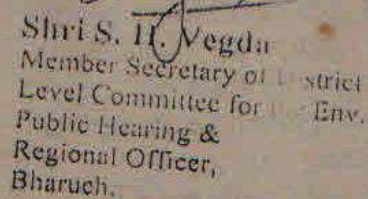 Shri S. H. Vegda
Member Secretary of District
Level Committee for Env.
Public Hearing &
Regional Officer,
Bharuch.